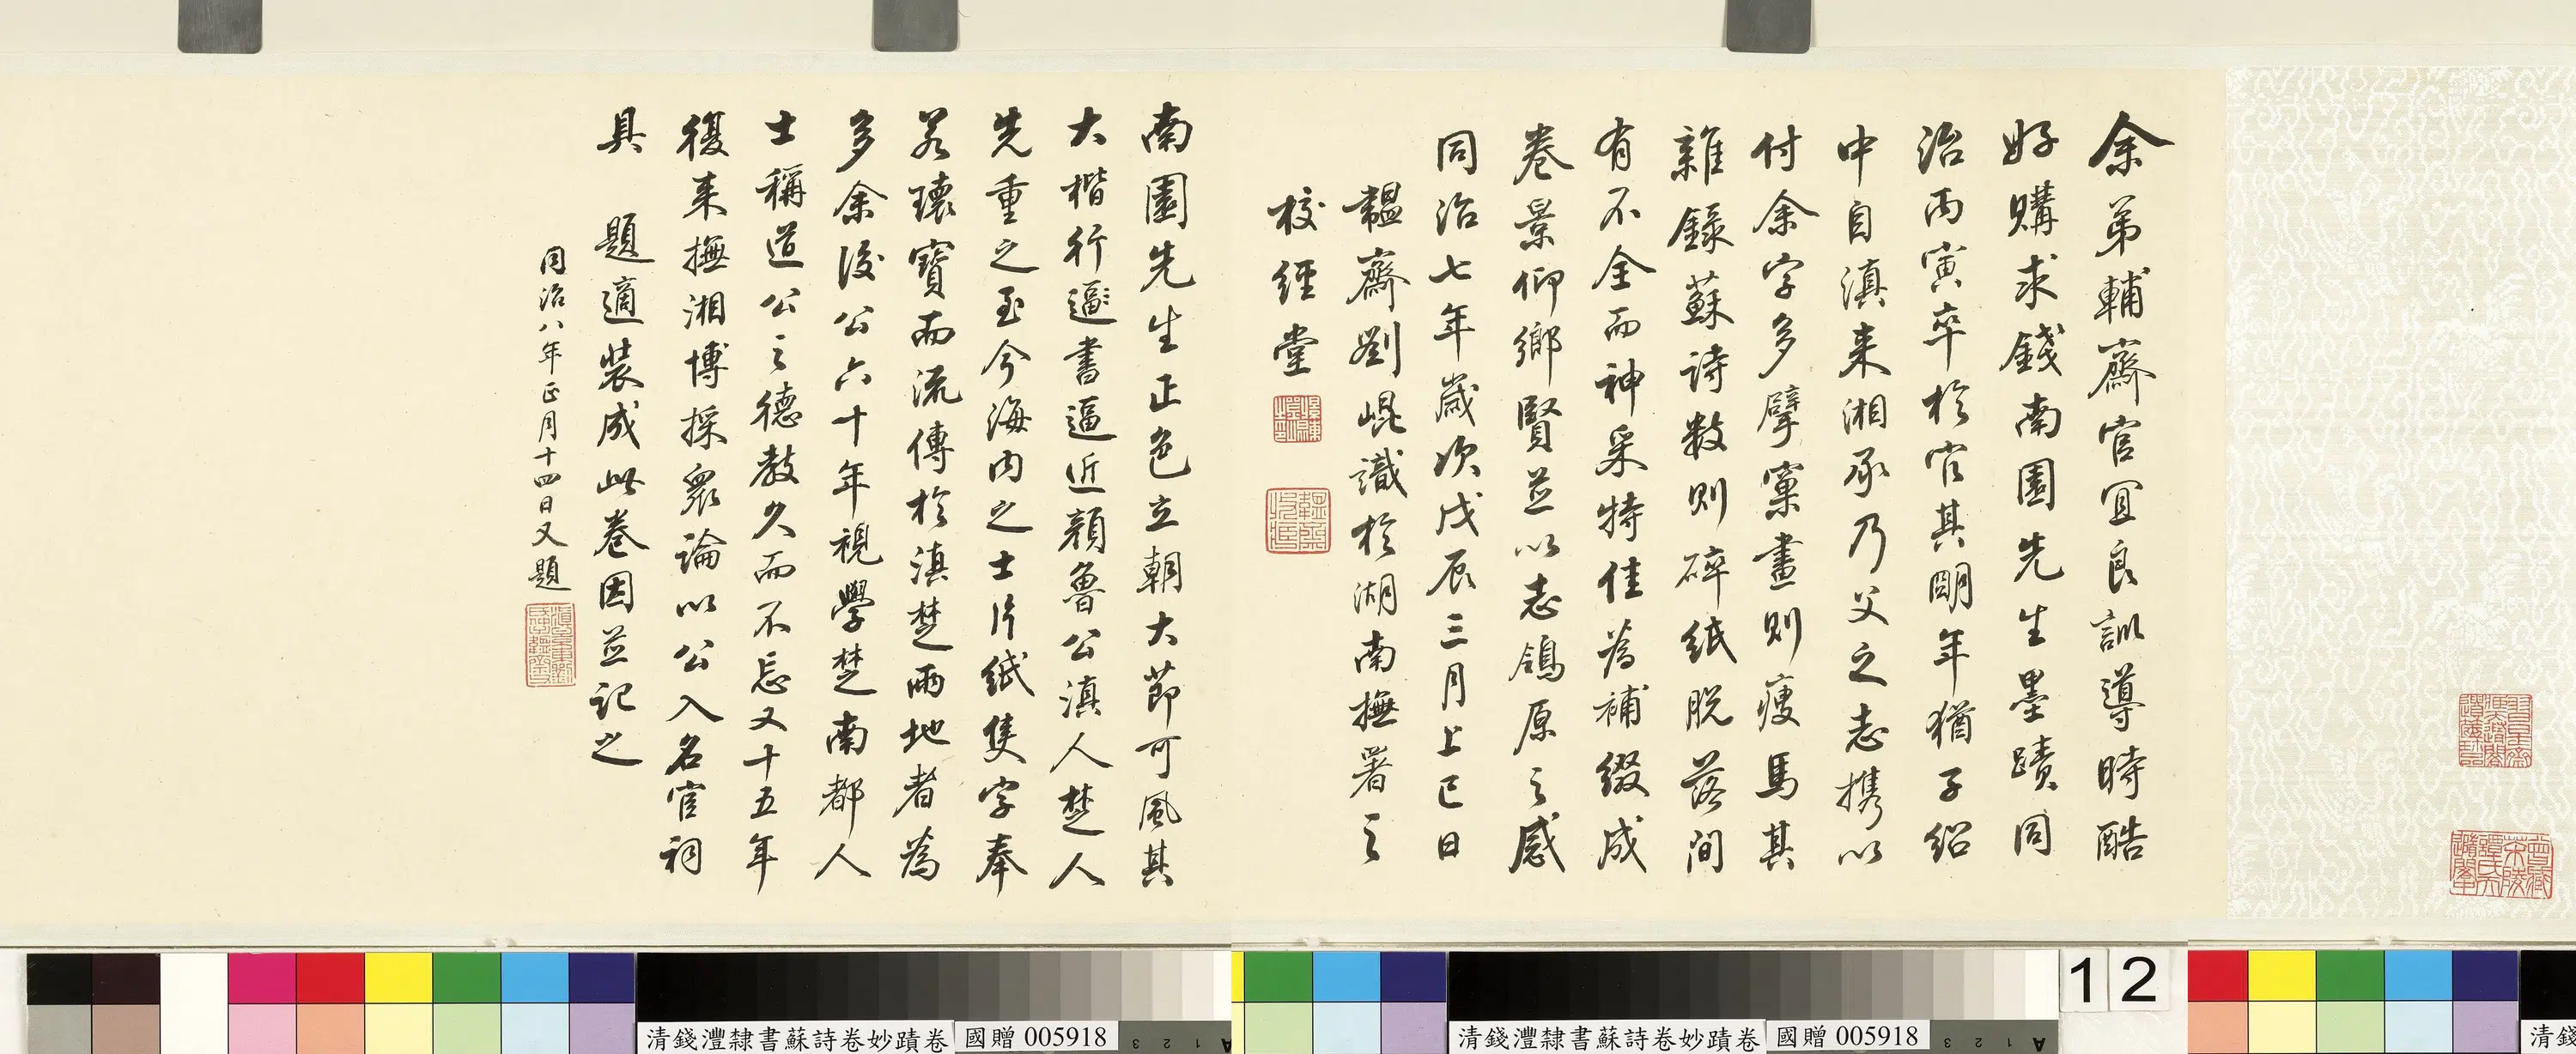 余弟輔齋官宜良訓導時酷
好購求錢南園先生墨蹟同
治丙寅卒於官其明年猶子紹
中自滇来湘承乃父之志携以
付余字多擘窠畫則瘦馬其
雜錄蘇詩數則碎紙脫落間
有不全而神采特佳為補綴成
卷景仰鄉賢並以志鴒原之感
同治七年歲次戊辰三月上巳日
韞齋劉崐識於湖南撫署之
校經堂
南園先生正色立朝大節可風其
大楷行邇書逼近顏魯公滇人楚人
先重之至今海内之士片紙隻字奉
若瓌寶而流傳於滇楚兩地者為
多余後公六十年視學楚南都人
士稱道公之德教久而不忘又十五年
復来撫湘博採衆論以公入名宦祠
具題適裝成此卷因並記之
同治八年正月十四日又題
12
清錢灃隸書蘇詩卷妙蹟卷 國贈 005918
清錢灃隸書蘇詩卷妙蹟卷 國贈 005918
清錢